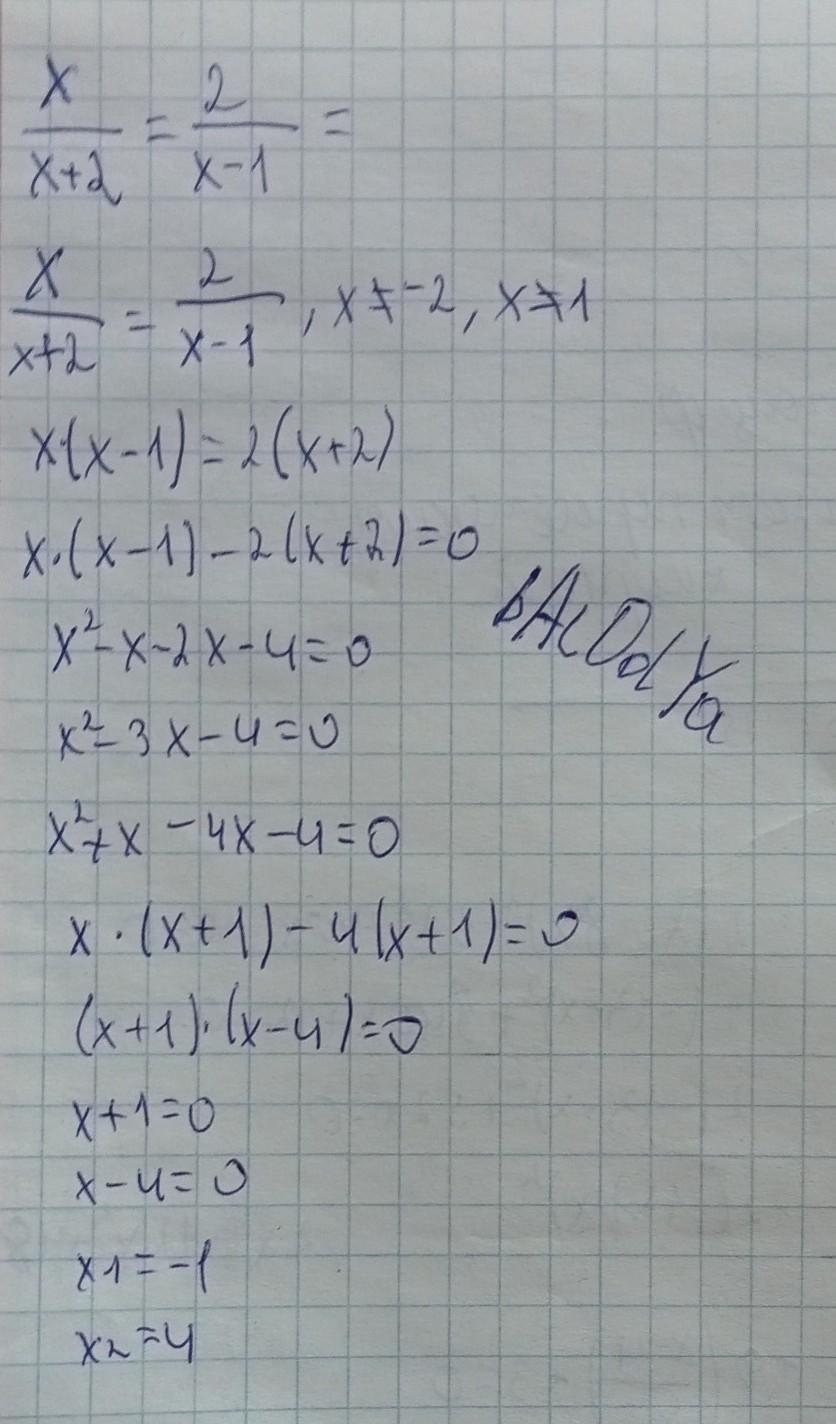 x/(x+2) = 2/(x-1) =
x/(x+2) = 2/(x-1), x≠-2, x≠1
x·(x-1)=2(x+2)
x·(x-1)-2(x+2)=0
x²-x-2x-4=0
bAcOdYa
x²-3x-4=0
x²+x-4x-4=0
x·(x+1)-4(x+1)=0
(x+1)·(x-4)=0
x+1=0
x-4=0
x1=-1
x2=4